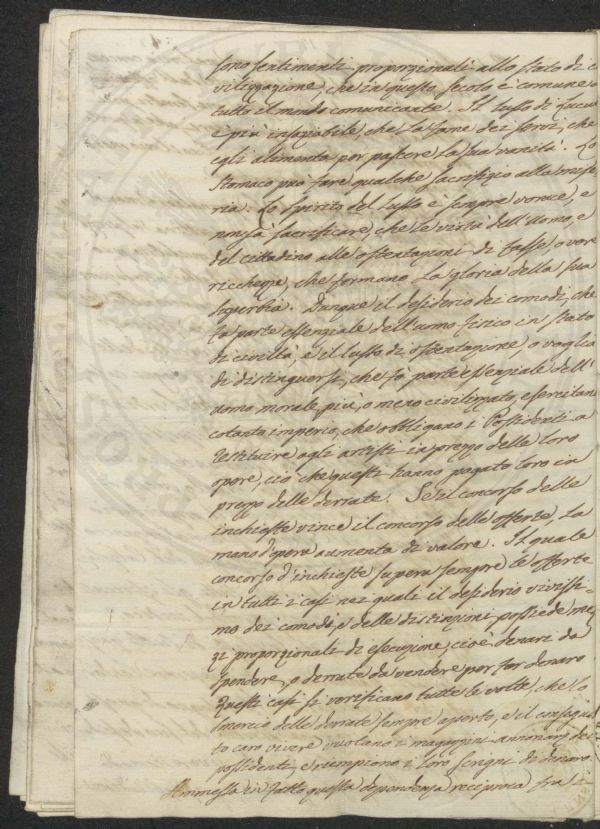 sono sentimenti proporzionali allo stato di ci
vilizzazione, che in questo secolo è comune a
tutto il mondo comunicante. Il lusso di
è più insaziabile, che la fame dei servi, che
egli alimenta per pascere la sua vanità. Lo
stomaco può fare qualche sacrifizio alla mise
ria. Lo spirito del lusso è sempre vorace, e
non sà sacrificare, che le virtù dell'Uomo, e
del cittadino alle ostentazioni di false, o vere
ricchezze, che formano la gloria della sua
superbia. Dunque il desiderio dei comodi, che
fà parte essenziale dell'uomo fisico in stato
di civiltà, e il lusso di ostentazione, o voglia
di distinguersi, che fà parte essenziale dell'
uomo morale, più, o meno civilizzato, esercitano
cotanto imperio, che obbligano i Possidenti a
restituire agli artisti in prezzo delle loro
opere, ciò che questi hanno pagato loro in
prezzo delle derrate. Se il concorso delle
inchieste vince il concorso delle offerte, la
mano d'opera aumenta di valore. Il quale
concorso d'inchieste supera sempre le offerte
in tutti i casi nei quali il desiderio vivissi-
mo dei comodi, e delle distinzioni possiede me
zi proporzionali di esecuzione, cioè denari da
spendere, o derrate da vendere per far denaro
Questi casi si verificano tutte le volte, che lo
smercio delle derrate sempre aperto, e il consegua
to caro vivere vuotano i magazzini annonarj dei
possidenti, e riempiono i loro scrigni di denaro.
Ammessa in fatto questa dipendenza reciproca fra i